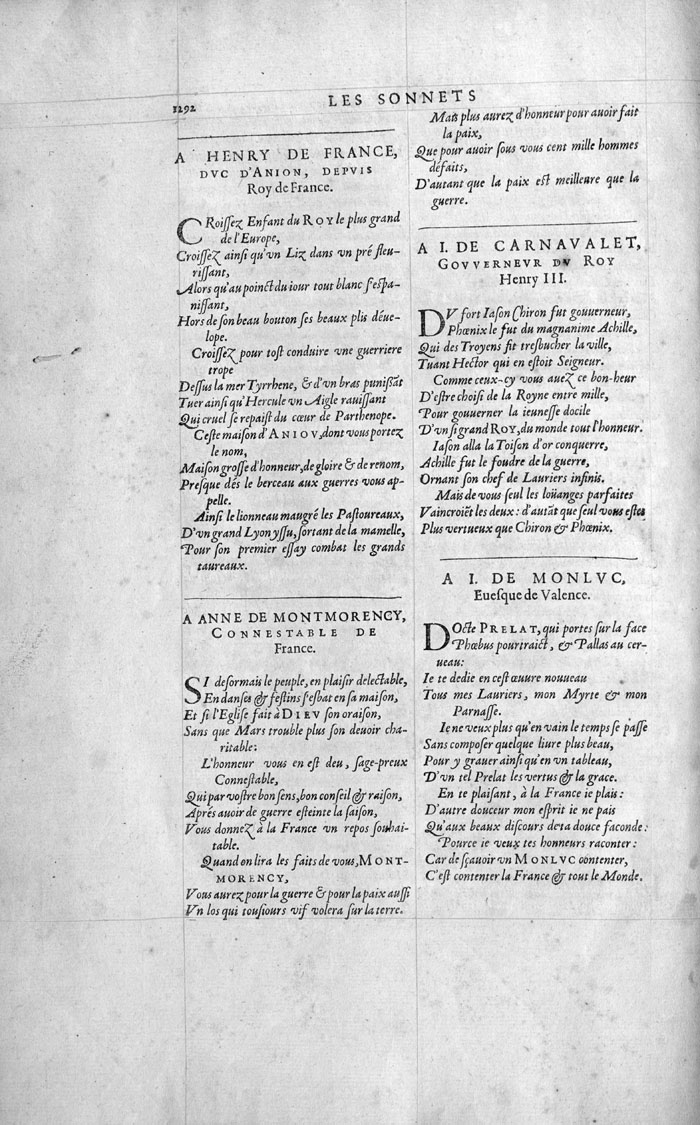 1292
LES SONNETS
A HENRY DE FRANCE,
DVC D'ANION, DEPVIS
Roy de France.
CRoissez Enfant du ROY le plus grand
de l'Europe,
Croissez ainsi qu'vn Liz dans vn pré fleu-
rissant,
Alors qu'au poinct du iour tout blanc s'espa-
nissant,
Hors de son beau bouton ses beaux plis déue-
lope.
Croissez pour tost conduire vne guerriere
trope
Dessus la mer Tyrrhene, & d'vn bras punissãt
Tuer ainsi qu'Hercule vn Aigle rauissant
Qui cruel se repaist du cœur de Parthenope.
Ceste maison d'ANIOV, dont vous portez
le nom,
Maison grosse d'honneur, de gloire & de renom,
Presque dés le berceau aux guerres vous ap-
pelle.
Ainsi le lionneau maugré les Pastoureaux,
D'vn grand Lyon yssu, sortant de la mamelle,
Pour son premier essay combat les grands
taureaux.
A ANNE DE MONTMORENCY,
CONNESTABLE DE
France.
SI desormais le peuple, en plaisir delectable,
En danses & festins s'esbat en sa maison,
Et si l'Eglise fait à DIEV son oraison,
Sans que Mars trouble plus son deuoir cha-
ritable:
L'honneur vous en est deu, sage-preux
Connestable,
Qui par vostre bon sens, bon conseil & raison,
Apres auoir de guerre esteinte la saison,
Vous donnez à la France vn repos souhai-
table.
Quand on lira les faits de vous, MONT-
MORENCY,
Vous aurez pour la guerre & pour la paix aussi
Vn los qui tousiours vif volera sur la terre.
Mais plus aurez d'honneur pour auoir fait
la paix,
Que pour auoir sous vous cent mille hommes
défaits,
D'autant que la paix est meilleure que la
guerre.
A I. DE CARNAVALET,
GOVVERNEVR DV ROY
Henry III.
DV fort Iason Chiron fut gouuerneur,
Phœnix le fut du magnanime Achille,
Qui des Troyens fit tresbucher la ville,
Tuant Hector qui en estoit Seigneur.
Comme ceux-cy vous auez ce bon-heur
D'estre choisi de la Royne entre mille,
Pour gouuerner la ieunesse docile
D'vn si grand ROY, du monde tout l'honneur.
Iason alla la Toison d'or conquerre,
Achille fut le foudre de la guerre,
Ornant son chef de Lauriers infinis.
Mais de vous seul les loüanges parfaites
Vaincroiẽt les deux: d'autãt que seul vous estes
Plus vertueux que Chiron & Phœnix.
A I. DE MONLVC,
Euesque de Valence.
DOcte PRELAT, qui portes sur la face
Phœbus pourtraict, & Pallas au cer-
ueau:
Ie te dedie en cest œuure nouueau
Tous mes Lauriers, mon Myrte & mon
Parnasse.
Ie ne veux plus qu'en vain le temps se passe
Sans composer quelque liure plus beau,
Pour y grauer ainsi qu'en vn tableau,
D'vn tel Prelat les vertus & la grace.
En te plaisant, à la France ie plais:
D'autre douceur mon esprit ie ne pais
Qu'aux beaux discours de ta douce faconde:
Pource ie veux tes honneurs raconter:
Car de sçauoir vn MONLVC contenter,
C'est contenter la France & tout le Monde.